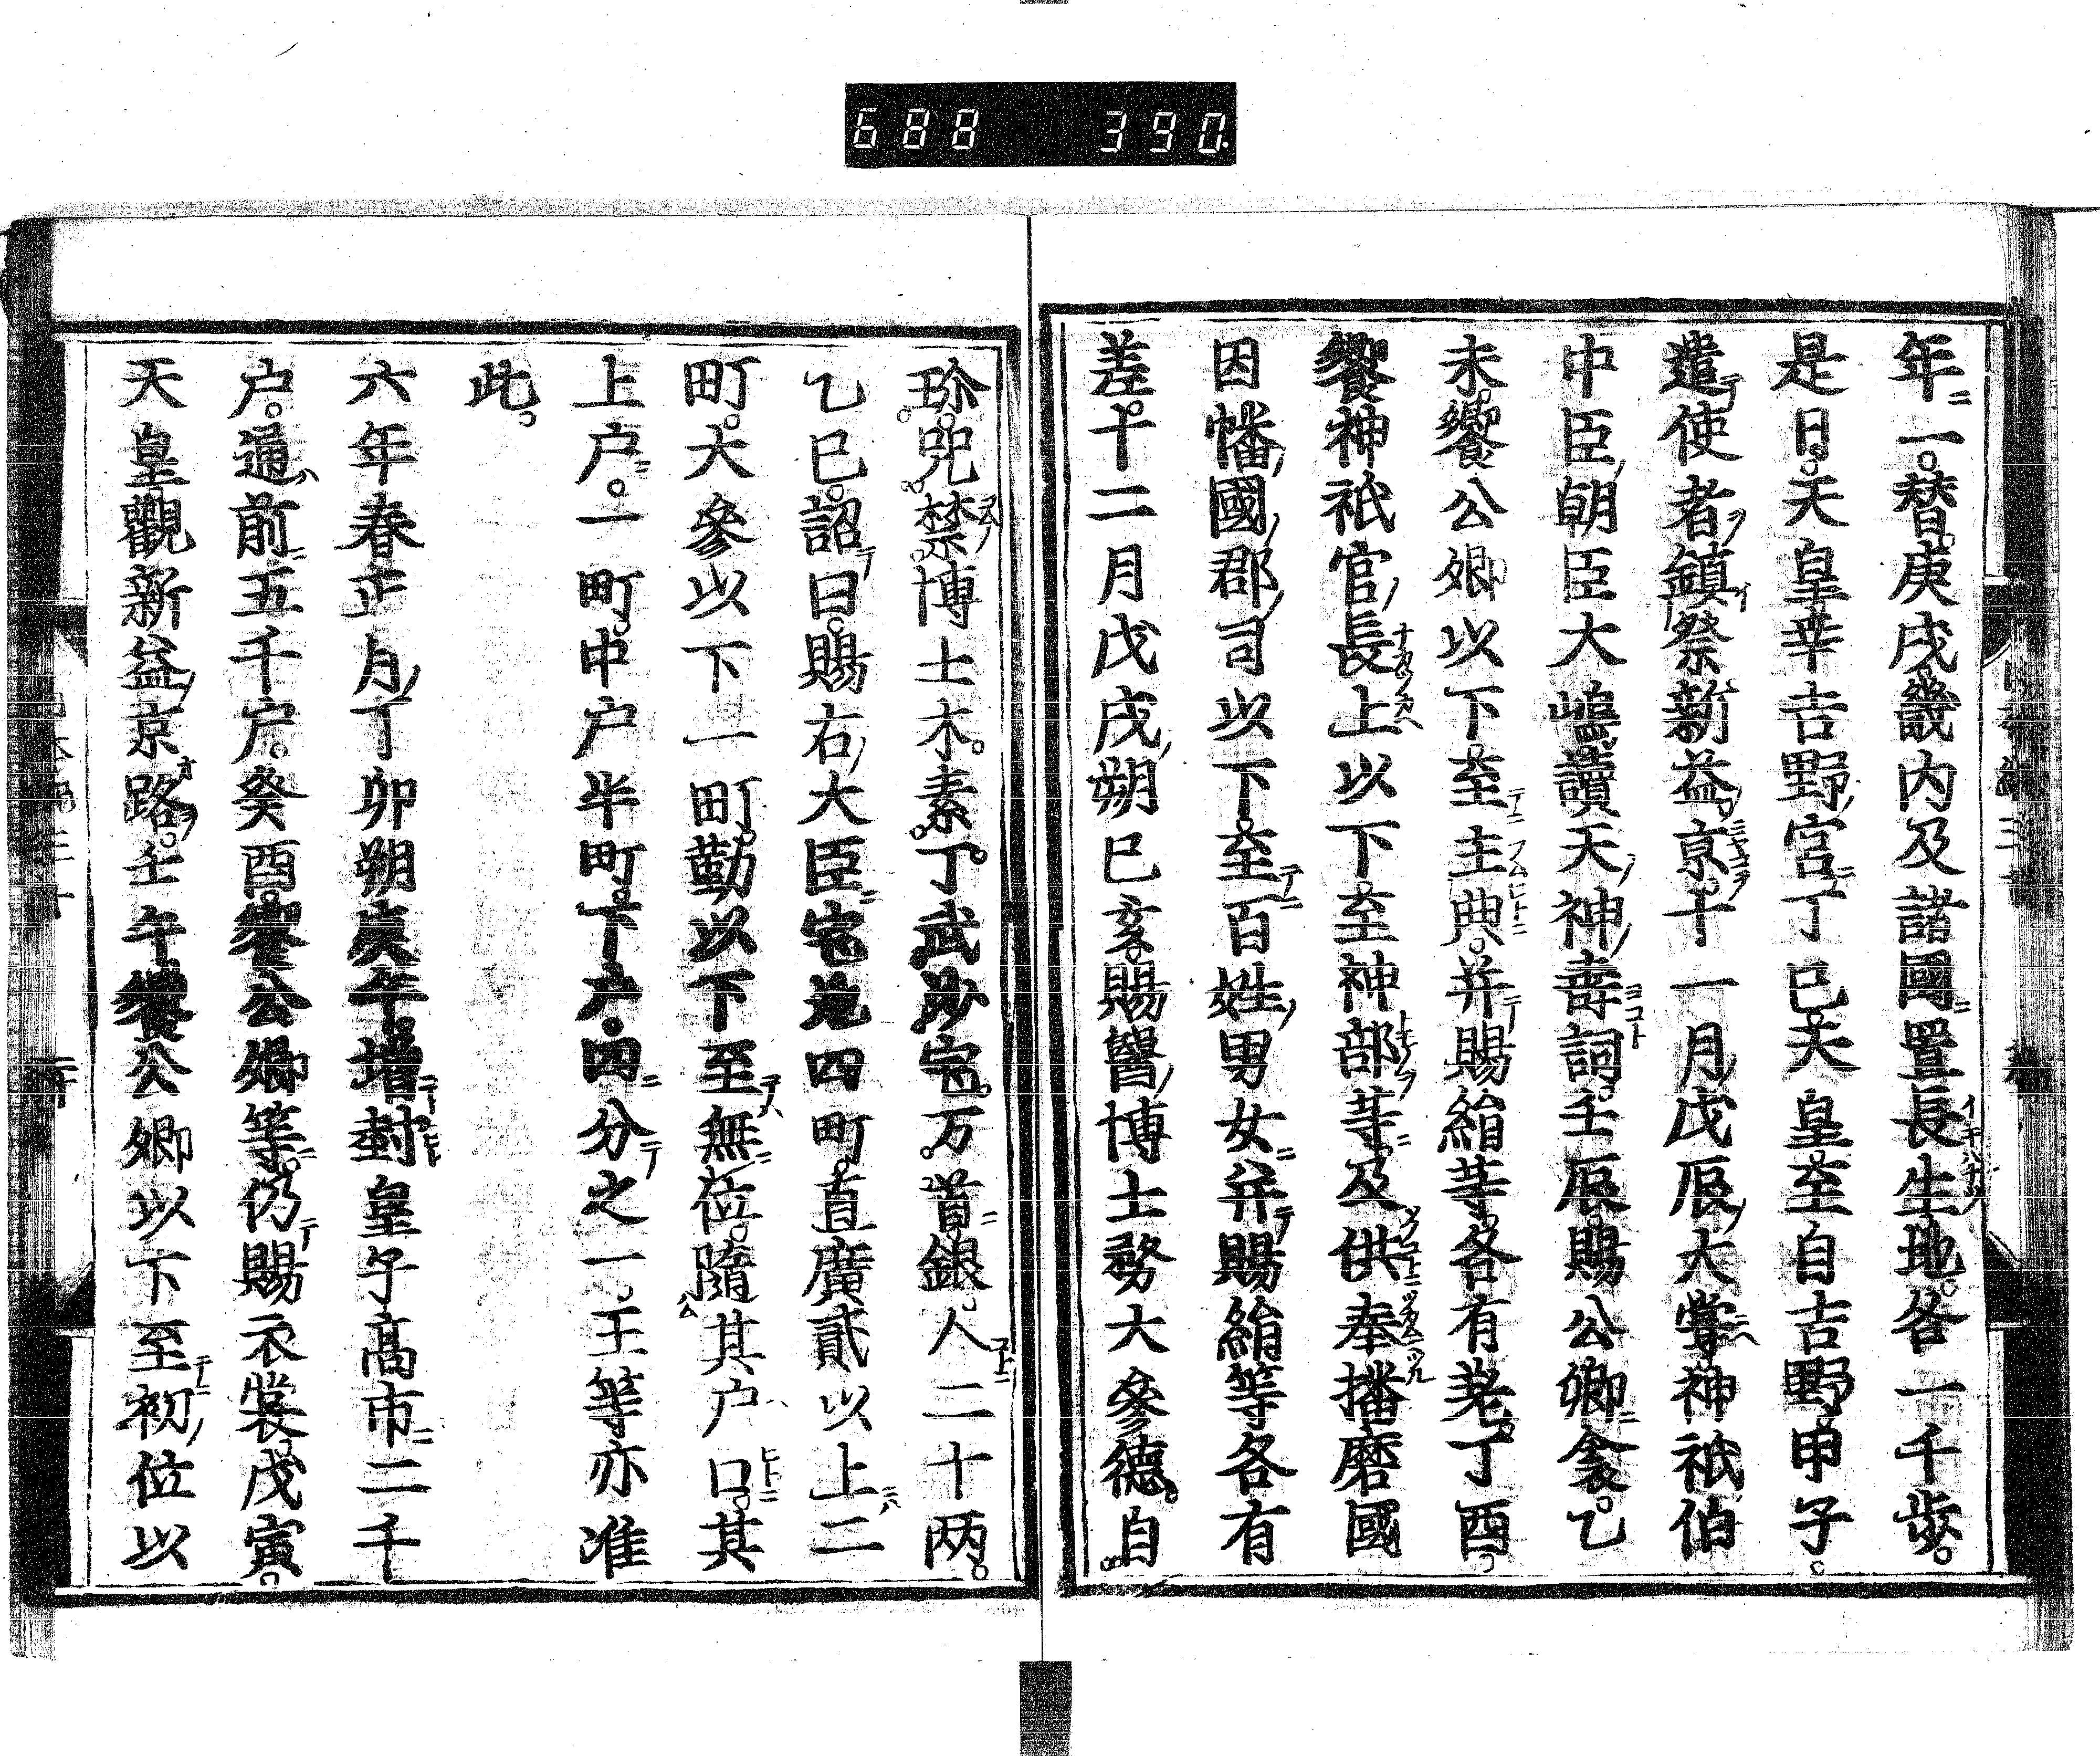 688 390
年一替庚戌畿内及諸國置長生地各一千歩
是日天皇幸吉野宮丁巳天皇至自吉野甲子
遣使者鎮祭新益京十一月戊辰大嘗神祇伯
中臣朝臣大嶋讀天神壽詞壬辰賜公卿衾乙
未饗公卿以下至主典并賜絹等各有差丁酉
饗神祇官長上以下至神部等及供奉播磨國
因幡國郡司以下至百姓男女并賜絹等各有
差十二月戊戌朔己亥賜醫博士務大參德自
珍咒禁博士木素丁武沙宅万首銀人二十两
乙巳詔曰賜右大臣宅地四町直廣貳以上二
町大參以下一町勤以下至無位隨其户口其
上户一町中户半町下户四分之一王等亦准
此
六年春正月丁卯朔庚午增封皇子高市二千
户通前五千户癸酉饗公卿等仍賜衣裳戊寅
天皇觀新益京路壬午饗公卿以下至初位以